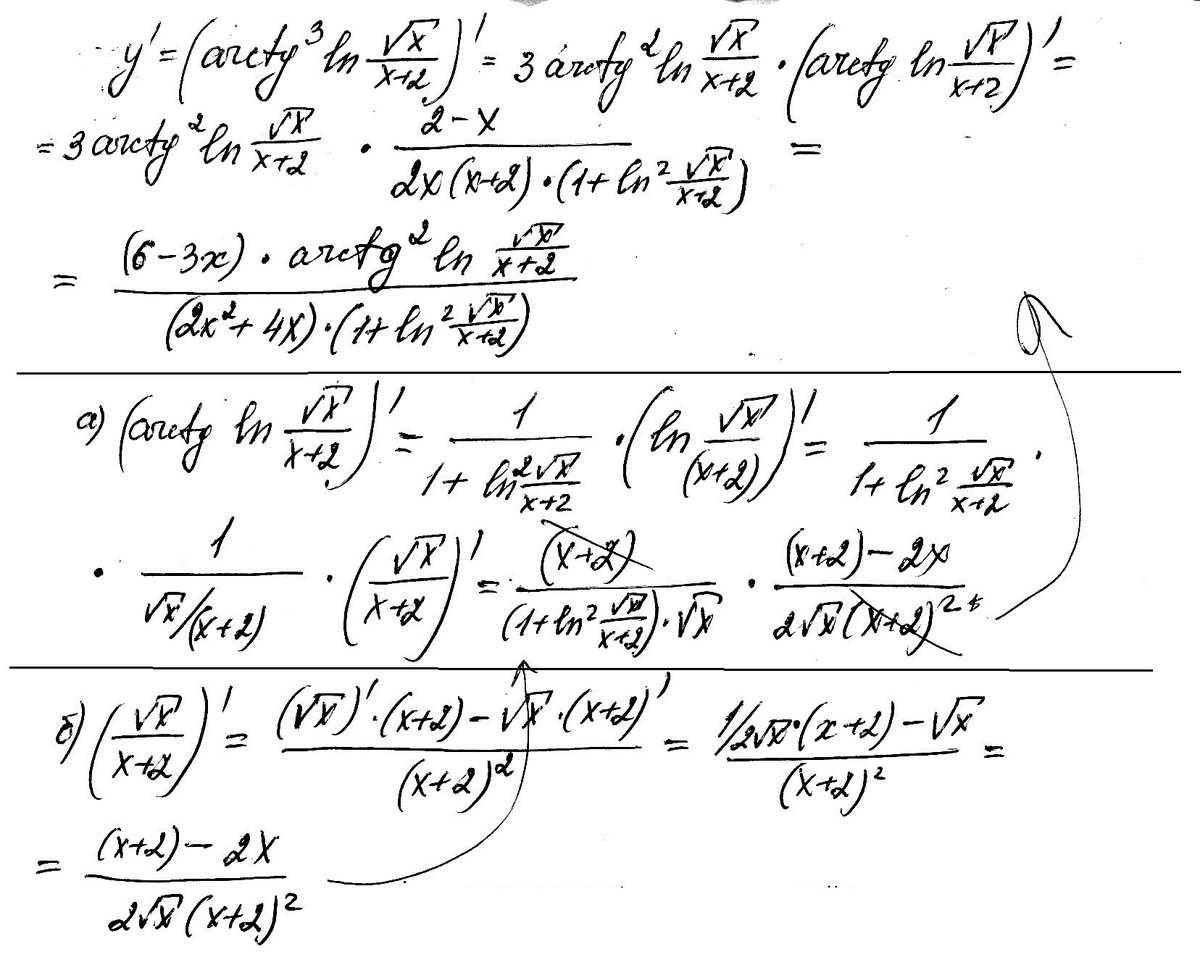 y' = (arctg³ ln √x/(x+2))' = 3 arctg² ln √x/(x+2) · (arctg ln √x/(x+2))' =
= 3 arctg² ln √x/(x+2) · (2-x)/(2x(x+2)·(1+ln² √x/(x+2))) =
= ((6-3x) · arctg² ln √x/(x+2))/((2x²+4x)·(1+ln² √x/(x+2)))
а) (arctg ln √x/(x+2))' = 1/(1+ln² √x/(x+2)) · (ln √x/(x+2))' = 1/(1+ln² √x/(x+2)) ·
· 1/(√x/(x+2)) · (√x/(x+2))' = (x+2)/((1+ln² √x/(x+2))·√x) · ((x+2)-2x)/(2√x(x+2)²)
б) (√x/(x+2))' = ((√x)'·(x+2)-√x·(x+2)')/(x+2)² = (1/2√x·(x+2)-√x)/(x+2)² =
= ((x+2)-2x)/(2√x(x+2)²)